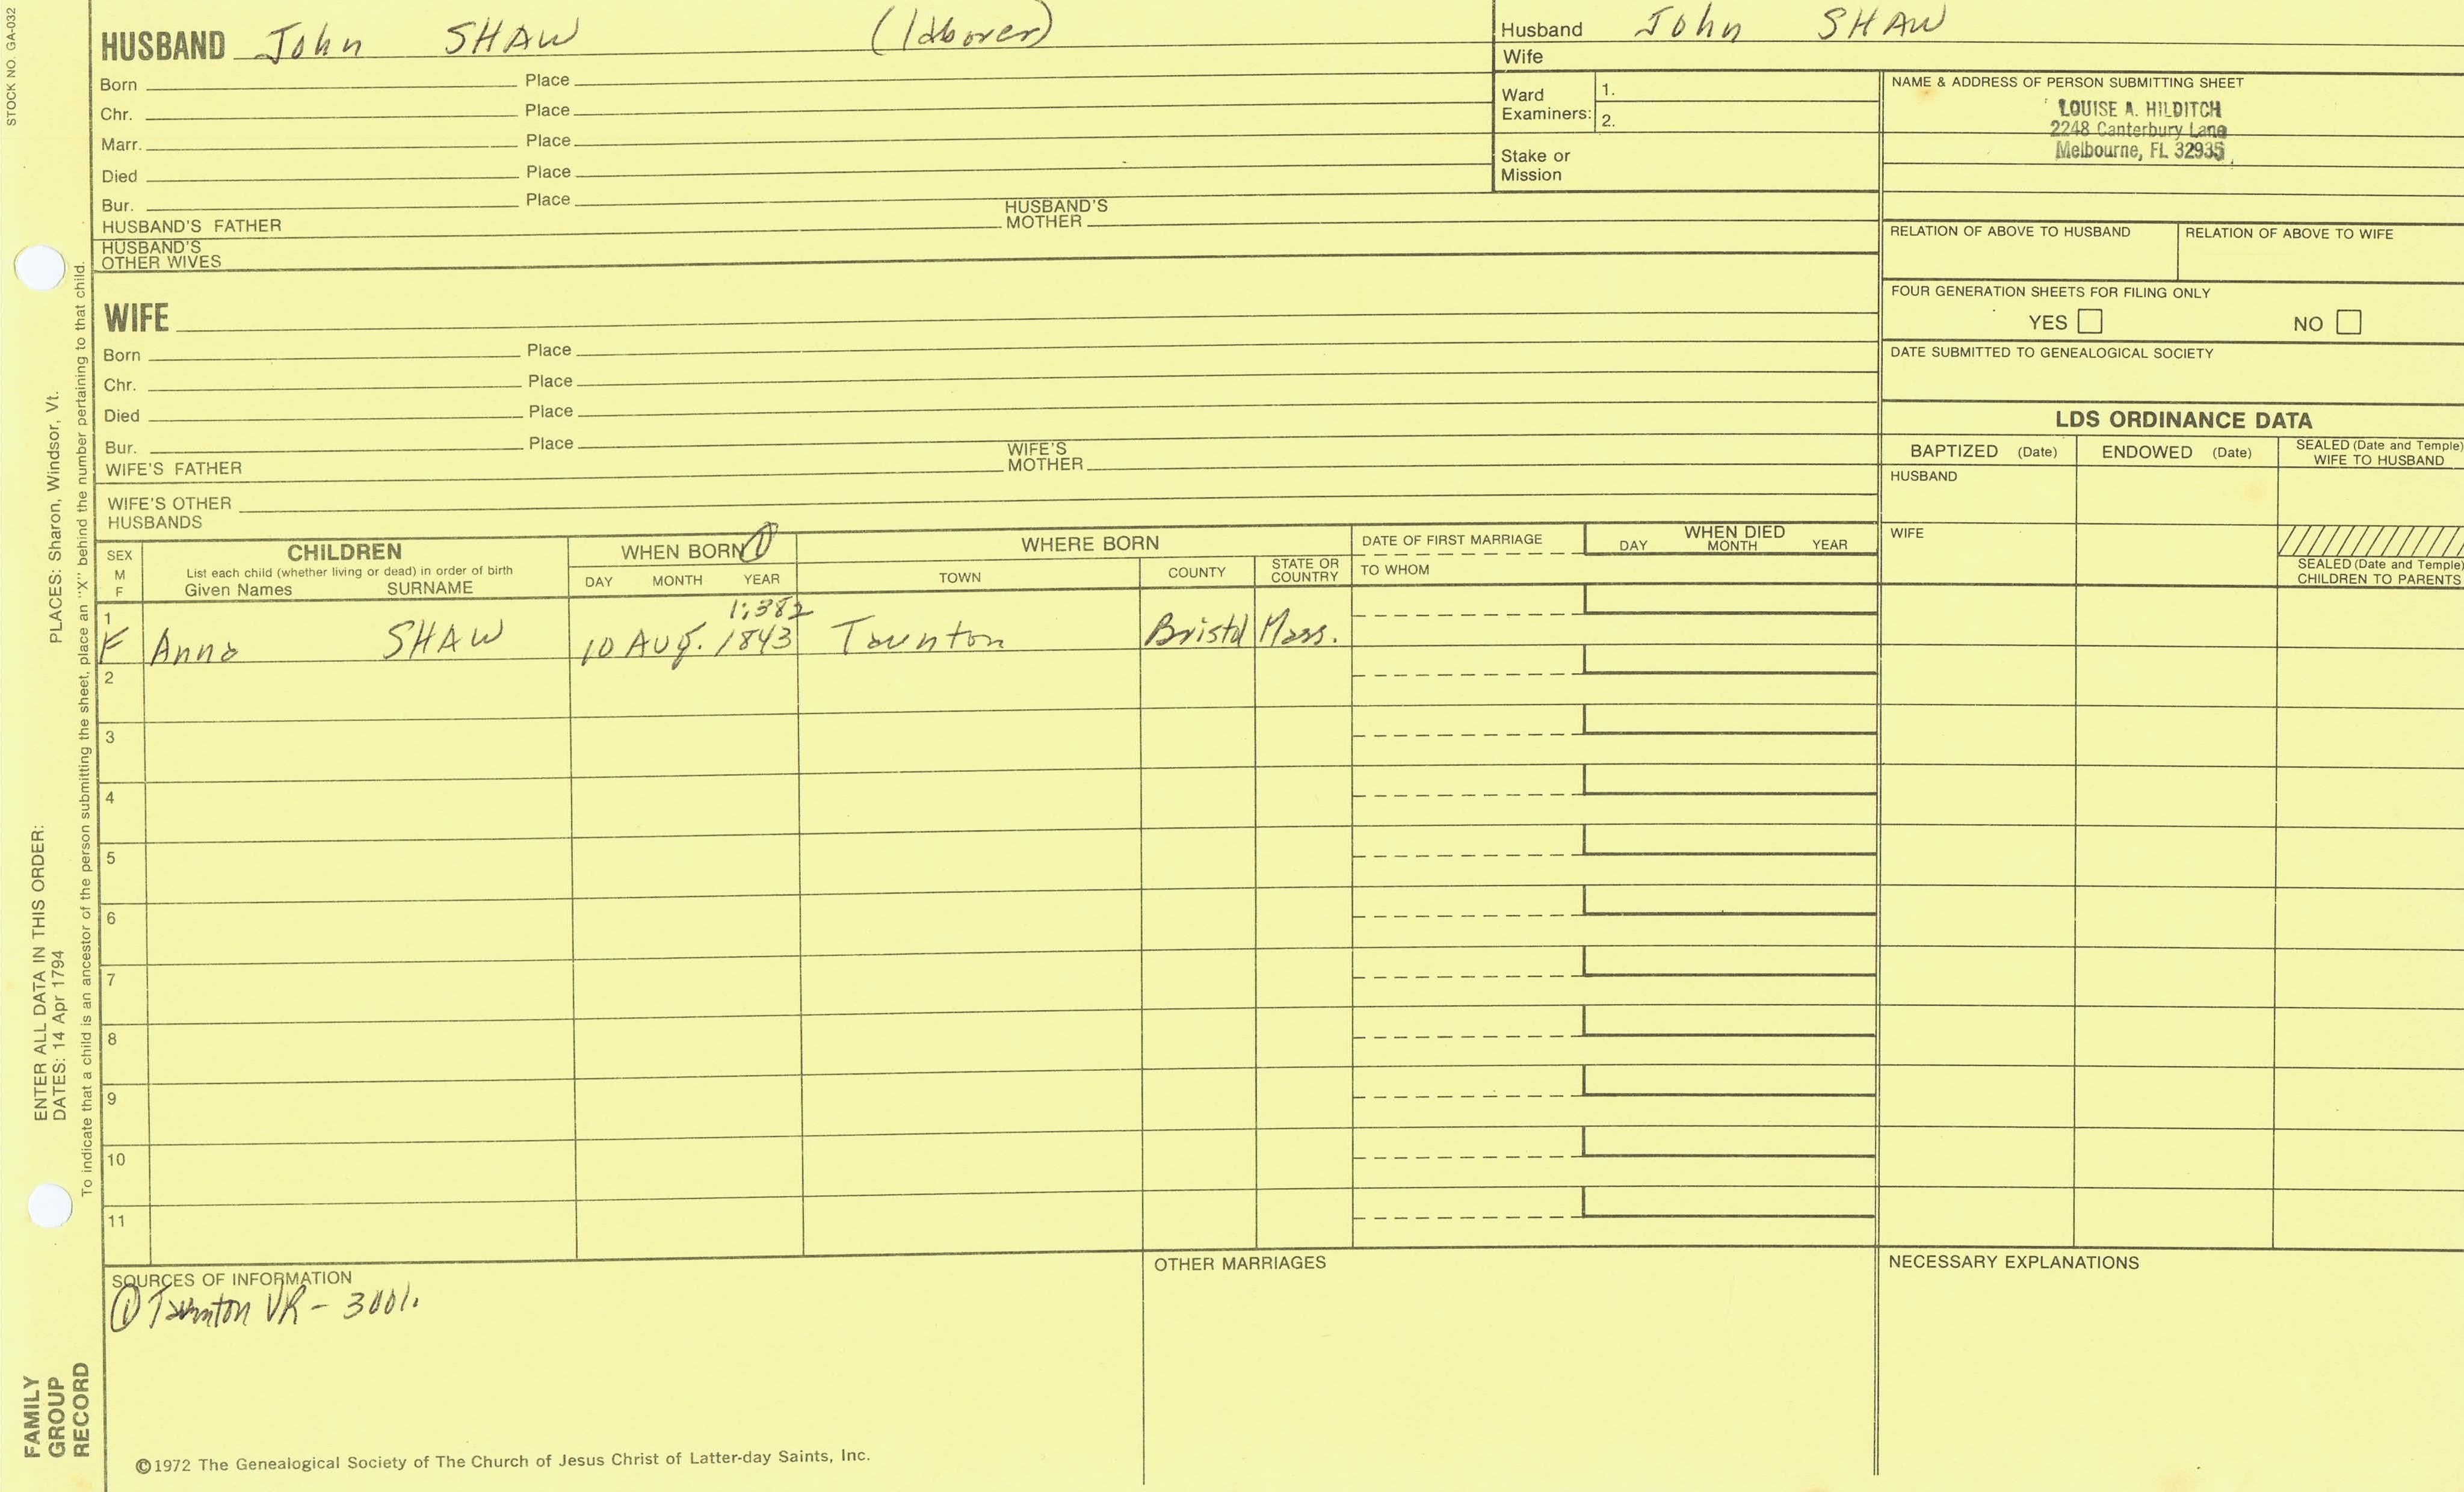 STOCK NO. GA-032
HUSBAND John SHAW (laborer)
Born Place
Chr. Place
Marr. Place
Died Place
Bur. Place
HUSBAND'S FATHER HUSBAND'S MOTHER
HUSBAND'S OTHER WIVES
WIFE
Born Place
Chr. Place
Died Place
Bur. Place
WIFE'S FATHER WIFE'S MOTHER
WIFE'S OTHER HUSBANDS
Husband John SHAW
Wife
Ward Examiners: 1.
2.
Stake or Mission
NAME & ADDRESS OF PERSON SUBMITTING SHEET
LOUISE A. HILDITCH
2248 Canterbury Lane
Melbourne, FL 32935
RELATION OF ABOVE TO HUSBAND RELATION OF ABOVE TO WIFE
FOUR GENERATION SHEETS FOR FILING ONLY
YES NO
DATE SUBMITTED TO GENEALOGICAL SOCIETY
LDS ORDINANCE DATA
BAPTIZED (Date) ENDOWED (Date) SEALED (Date and Temple) WIFE TO HUSBAND
HUSBAND
WIFE
SEALED (Date and Temple) CHILDREN TO PARENTS
SEX M F
CHILDREN
List each child (whether living or dead) in order of birth
Given Names SURNAME
WHEN BORN ①
DAY MONTH YEAR
WHERE BORN
TOWN COUNTY STATE OR COUNTRY
DATE OF FIRST MARRIAGE
TO WHOM
WHEN DIED
DAY MONTH YEAR
1:382
1 F Anna SHAW 10 AUg. 1843 Taunton Bristol Mass.
2
3
4
5
6
7
8
9
10
11
SOURCES OF INFORMATION
① Taunton VR -
OTHER MARRIAGES
NECESSARY EXPLANATIONS
©1972 The Genealogical Society of The Church of Jesus Christ of Latter-day Saints, Inc.
FAMILY
GROUP
RECORD
ENTER ALL DATA IN THIS ORDER:
DATES: 14 Apr 1794
PLACES: Sharon, Windsor, Vt.
To indicate that a child is an ancestor of the person submitting the sheet, place an "X" behind the number pertaining to that child.